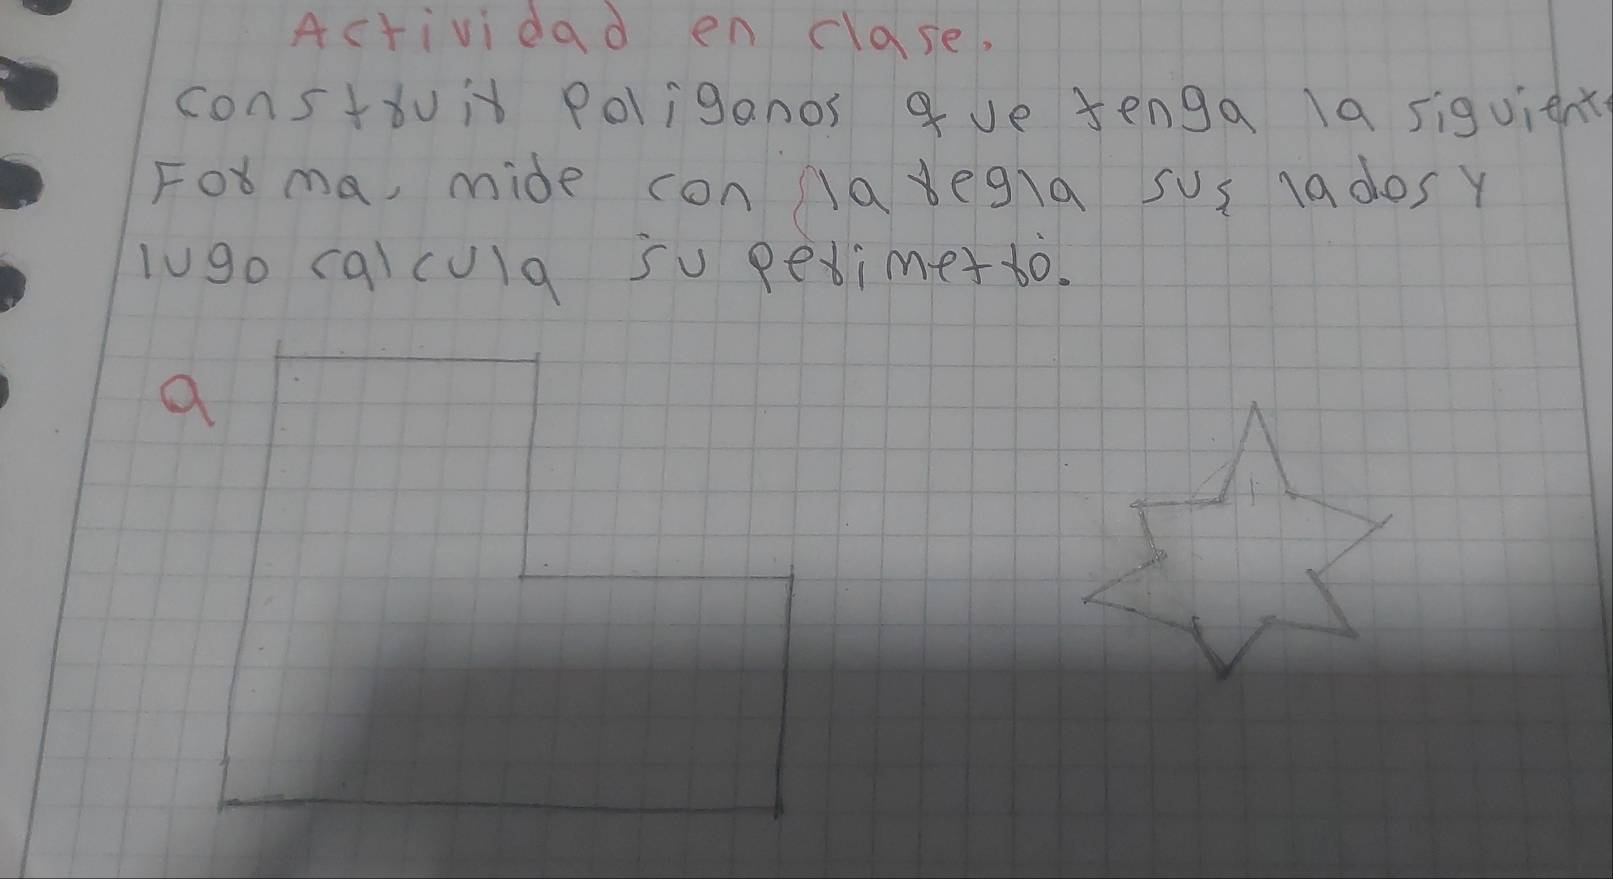 Actividad en clase.
construir poliganos que tenga la siguiente
Forma, mide con la regla sus lados y
lugo calcula su perimetro.
a